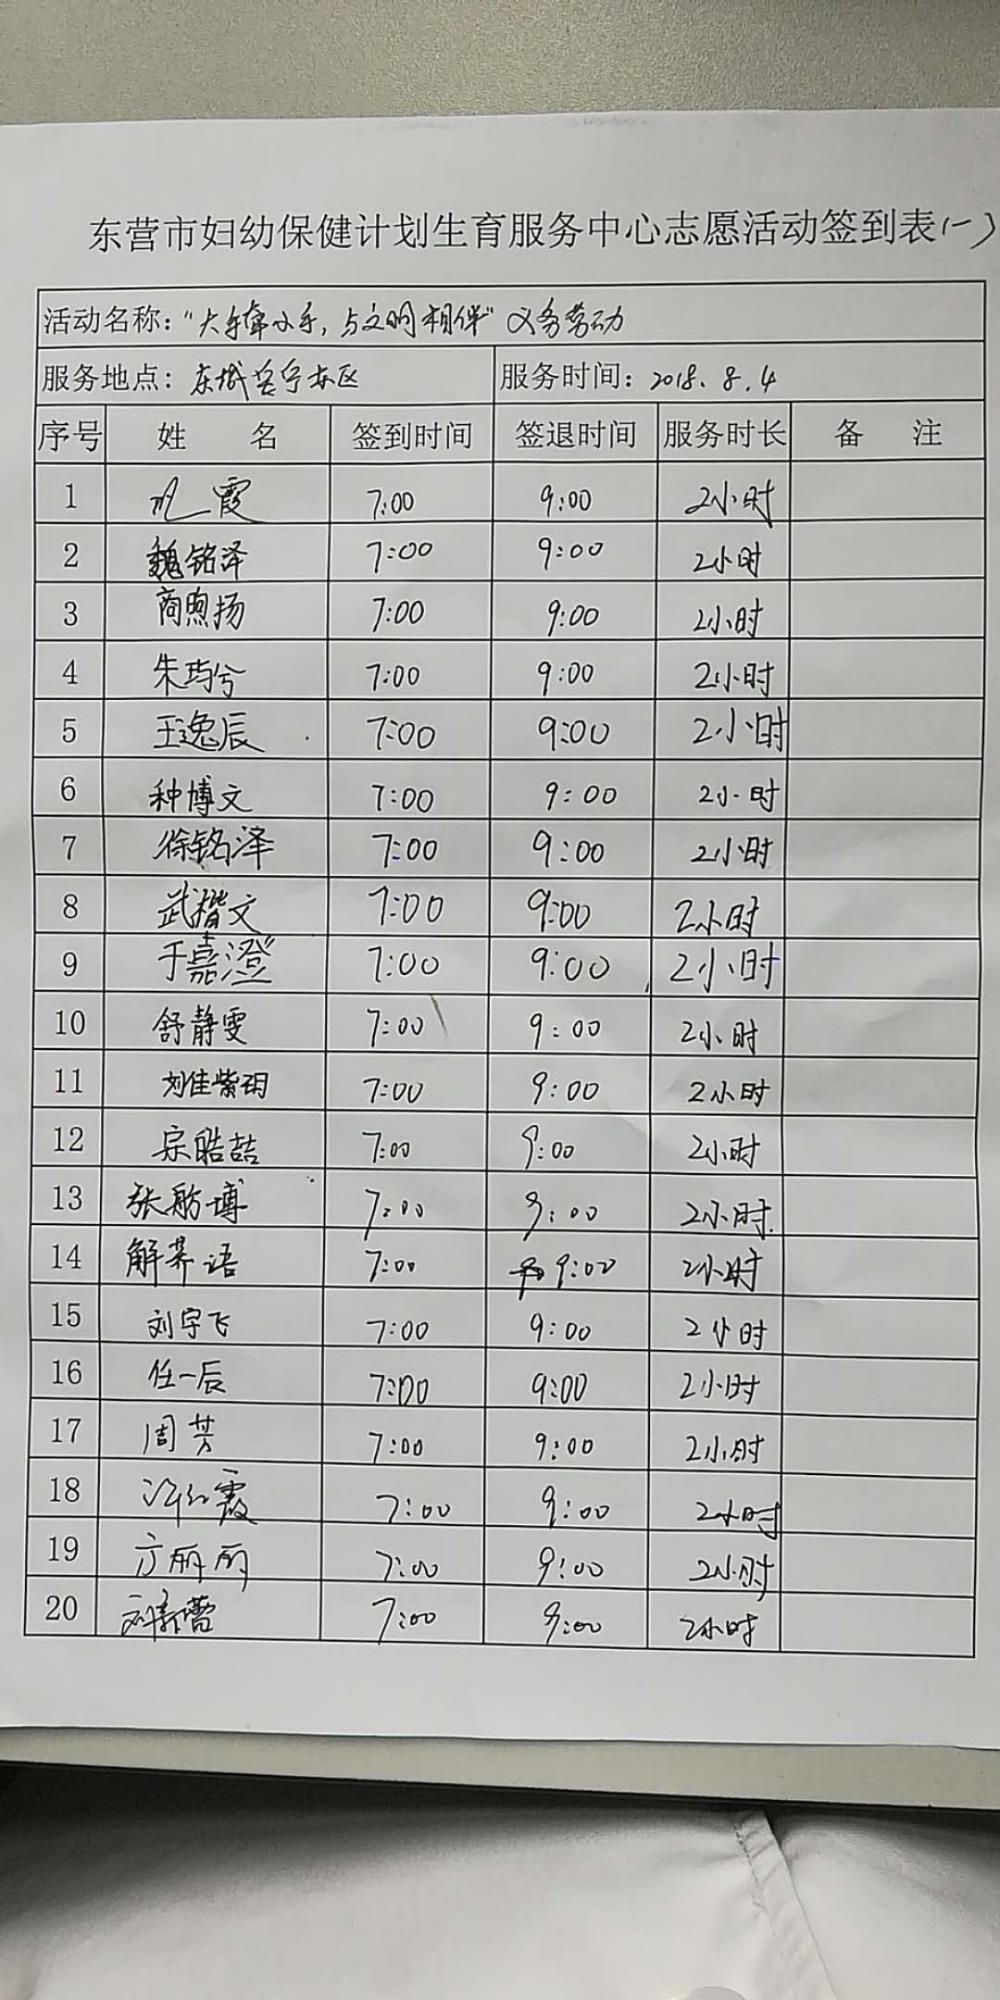 东营市妇幼保健计划生育服务中心志愿活动签到表(一)
活动名称：“大手牵小手，与文明相伴”义务劳动
服务地点：东城安宁东区 服务时间：2018.8.4
序号 姓 名 签到时间 签退时间 服务时长 备 注
1 霞 7:00 9:00 2小时
2 魏铭泽 7:00 9:00 2小时
3 商煦扬 7:00 9:00 2小时
4 朱玙兮 7:00 9:00 2小时
5 王逸辰 7:00 9:00 2小时
6 种博文 7:00 9:00 2小时
7 徐铭泽 7:00 9:00 2小时
8 武楷文 7:00 9:00 2小时
9 于嘉澄 7:00 9:00 2小时
10 舒静雯 7:00 9:00 2小时
11 刘佳紫玥 7:00 9:00 2小时
12 宗皓喆 7:00 9:00 2小时
13 张舫博 7:00 9:00 2小时
14 解荞语 7:00 9:00 2小时
15 刘宇飞 7:00 9:00 2小时
16 任一后 7:00 9:00 2小时
17 周芳 7:00 9:00 2小时
18 许红霞 7:00 9:00 2小时
19 方丽丽 7:00 9:00 2小时
20 刘新蕾 7:00 9:00 2小时